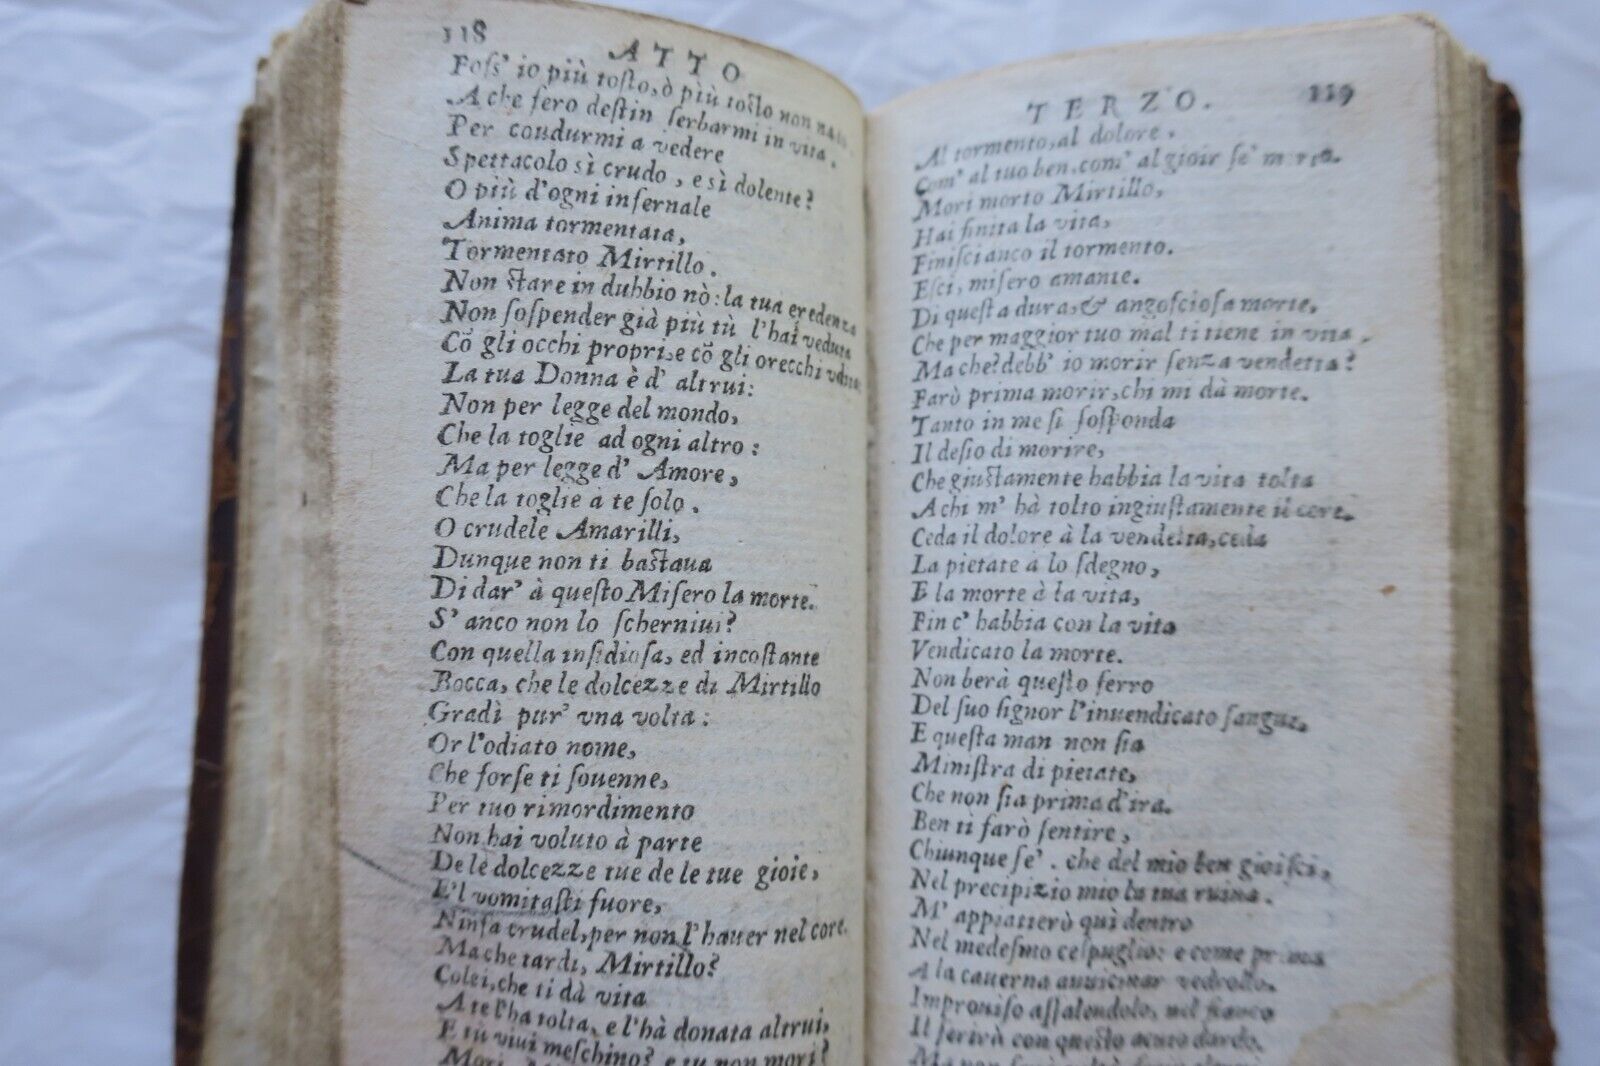 118
ATTO
Foſs' io più toſto, ò più toſto non nato,
A che fero deſtin ſerbarmi in vita.
Per coudurmi a vedere
Spettacolo sì crudo, e sì dolente?
O più d'ogni infernale
Anima tormentata,
Tormentato Mirtillo.
Non ſtare in dubbio nò: la tua credenza
Non ſoſpender già più tù l'hai veduta
Cõ gli occhi propri, e cõ gli orecchi vdita
La tua Donna è d' altrui:
Non per legge del mondo,
Che la toglie ad ogni altro:
Ma per legge d' Amore,
Che la toglie à te ſolo.
O crudele Amarilli,
Dunque non ti baſtaua
Di dar' à queſto Miſero la morte.
S' anco non lo ſcherniui?
Con quella inſidioſa, ed incoſtante
Bocca, che le dolcezze di Mirtillo
Gradì pur' vna volta:
Or l'odiato nome,
Che forſe ti ſouenne,
Per tuo rimordimento
Non hai voluto à parte
De le dolcezze tue de le tue gioie,
E'l vomitaſti fuore,
Ninfa crudel, per non l'hauer nel core.
Ma che tardi, Mirtillo?
Colei, che ti dà vita
A te l'ha tolta, e l'hà donata altrui,
E tù viui meſchino? e tu non mori?
Mori
TERZO.
119
Al tormento, al dolore,
Com' al tuo ben, com' al gioir ſe' morto.
Mori morto Mirtillo,
Hai finita la vita,
Finiſci anco il tormento.
Eſci, miſero amante.
Di queſta dura, & angoſcioſa morte.
Che per maggior tuo mal ti tiene in vita.
Ma che? debb' io morir ſenza vendetta?
Farò prima morir, chi mi dà morte.
Tanto in me ſi ſoſponda
Il deſio di morire,
Che giuſtamente habbia la vita tolta
A chi m' hà tolto ingiuſtamente il core.
Ceda il dolore à la vendetta, ceda
La pietate à lo ſdegno,
E la morte à la vita,
Fin c' habbia con la vita
Vendicato la morte.
Non berà queſto ferro
Del ſuo ſignor l'inuendicato ſangue,
E queſta man non ſia
Miniſtra di pietate,
Che non ſia prima d'ira.
Ben ti farò ſentire,
Chiunque ſe'. che del mio ben gioiſci,
Nel precipizio mio la tua ruina.
M' appiatterò quì dentro
Nel medeſmo ceſpuglio: e come prima
A la cauerna auuicinar vedrollo,
Improuiſo aſſalendolo, nel fianco
Il ferirò con queſto acuto dardo.
Ma non